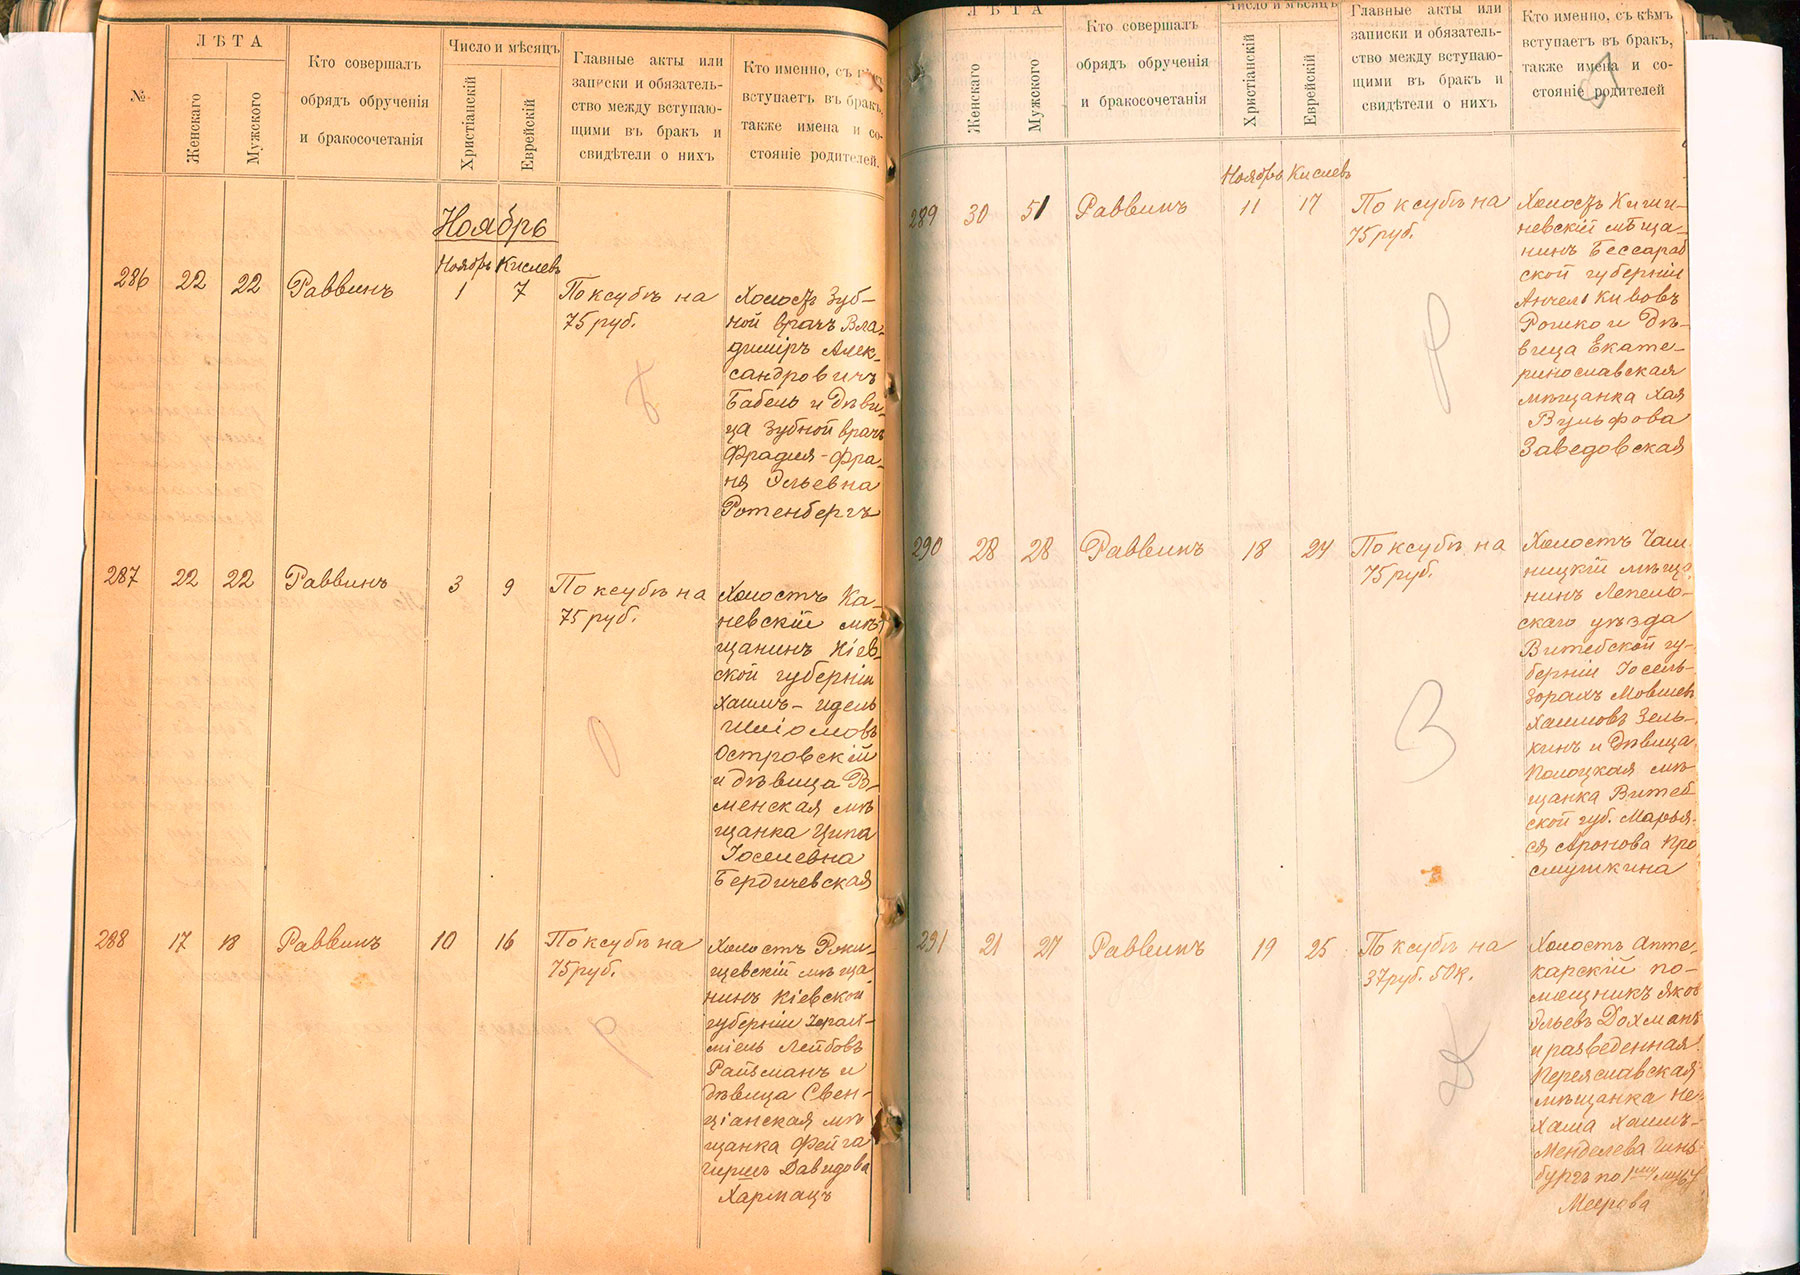 №
ЛѢТА
Женскаго
Мужского
Кто совершалъ
обрядъ обрученія
и бракосочетанія
Число и мѣсяцъ
Христіанскій
Еврейскій
Главные акты или
записки и обязатель-
ство между вступаю-
щими въ бракъ и
свидѣтели о нихъ
Кто именно, съ кѣмъ
вступаетъ въ бракъ,
также имена и со-
стояніе родителей.
Ноябрь
Ноябрь Кислевъ
286 22 22 Раввинъ 1 7
По ксубѣ на
75 руб.
Холостъ Зуб-
ной врачъ Вла-
димиръ Алек-
сандровичъ
Бабель и дѣви-
ца Зубной врачъ
Фрадия-Фра-
ня Эльевна
Ротенбергъ
Б
287 22 22 Раввинъ 3 9
По ксубѣ на
75 руб.
Холостъ Ка-
невскій мѣ-
щанинъ Кіев-
ской губерніи
Хаимъ-Идель
Шліомовъ
Островскій
и дѣвица Ро-
менская мѣ-
щанка Ципа
Іоселевна
Бердичевская
О
288 17 18 Раввинъ 10 16
По ксубѣ на
75 руб.
Холостъ
щевскій мѣща-
нинъ Кіевской
губерніи Іерах-
міель Лейбовъ
Райзманъ и
дѣвица Свен-
ціанская мѣ-
щанка Фейга
Гиршъ Давидова
Хармацъ
Р
ЛѢТА
Женскаго
Мужского
Кто совершалъ
обрядъ обрученія
и бракосочетанія
Число и мѣсяцъ
Христіанскій
Еврейскій
Главные акты или
записки и обязатель-
ство между вступаю-
щими въ бракъ и
свидѣтели о нихъ
Кто именно, съ кѣмъ
вступаетъ въ бракъ,
также имена и со-
стояніе родителей
Ноябрь Кислевъ
289 30 51 Раввинъ 11 17
По ксубѣ на
75 руб.
Холостъ Киши-
невскій мѣща-
нинъ Бессараб
ской губерніи
Анчель Кивовъ
Рошко и дѣ-
вица Екате-
ринославская
мѣщанка Хая
Вульфова
Заведовская
Р
290 28 28 Раввинъ 18 24
По ксубѣ на
75 руб.
Холостъ Чаш-
ницкій мѣща-
нинъ Лепель-
скаго уѣзда
Витебской гу-
берніи Іосель-
Зорахъ Мовшев
Хаимовъ Зель-
кинъ и дѣвица
Полоцкая мѣ-
щанка Витеб
ской губ. Марья-
ся Аронова Про
смушкина
З
291 21 27 Раввинъ 19 25
По ксубѣ на
37 руб. 50 к.
Холостъ Апте-
карскій по-
мощникъ Яковъ
Эльевъ Дохманъ
и разведенная
Переяславская
мѣщанка Не-
хама Хаимъ-
Менделева Гинз-
бургъ по 1му мужу
Меерова